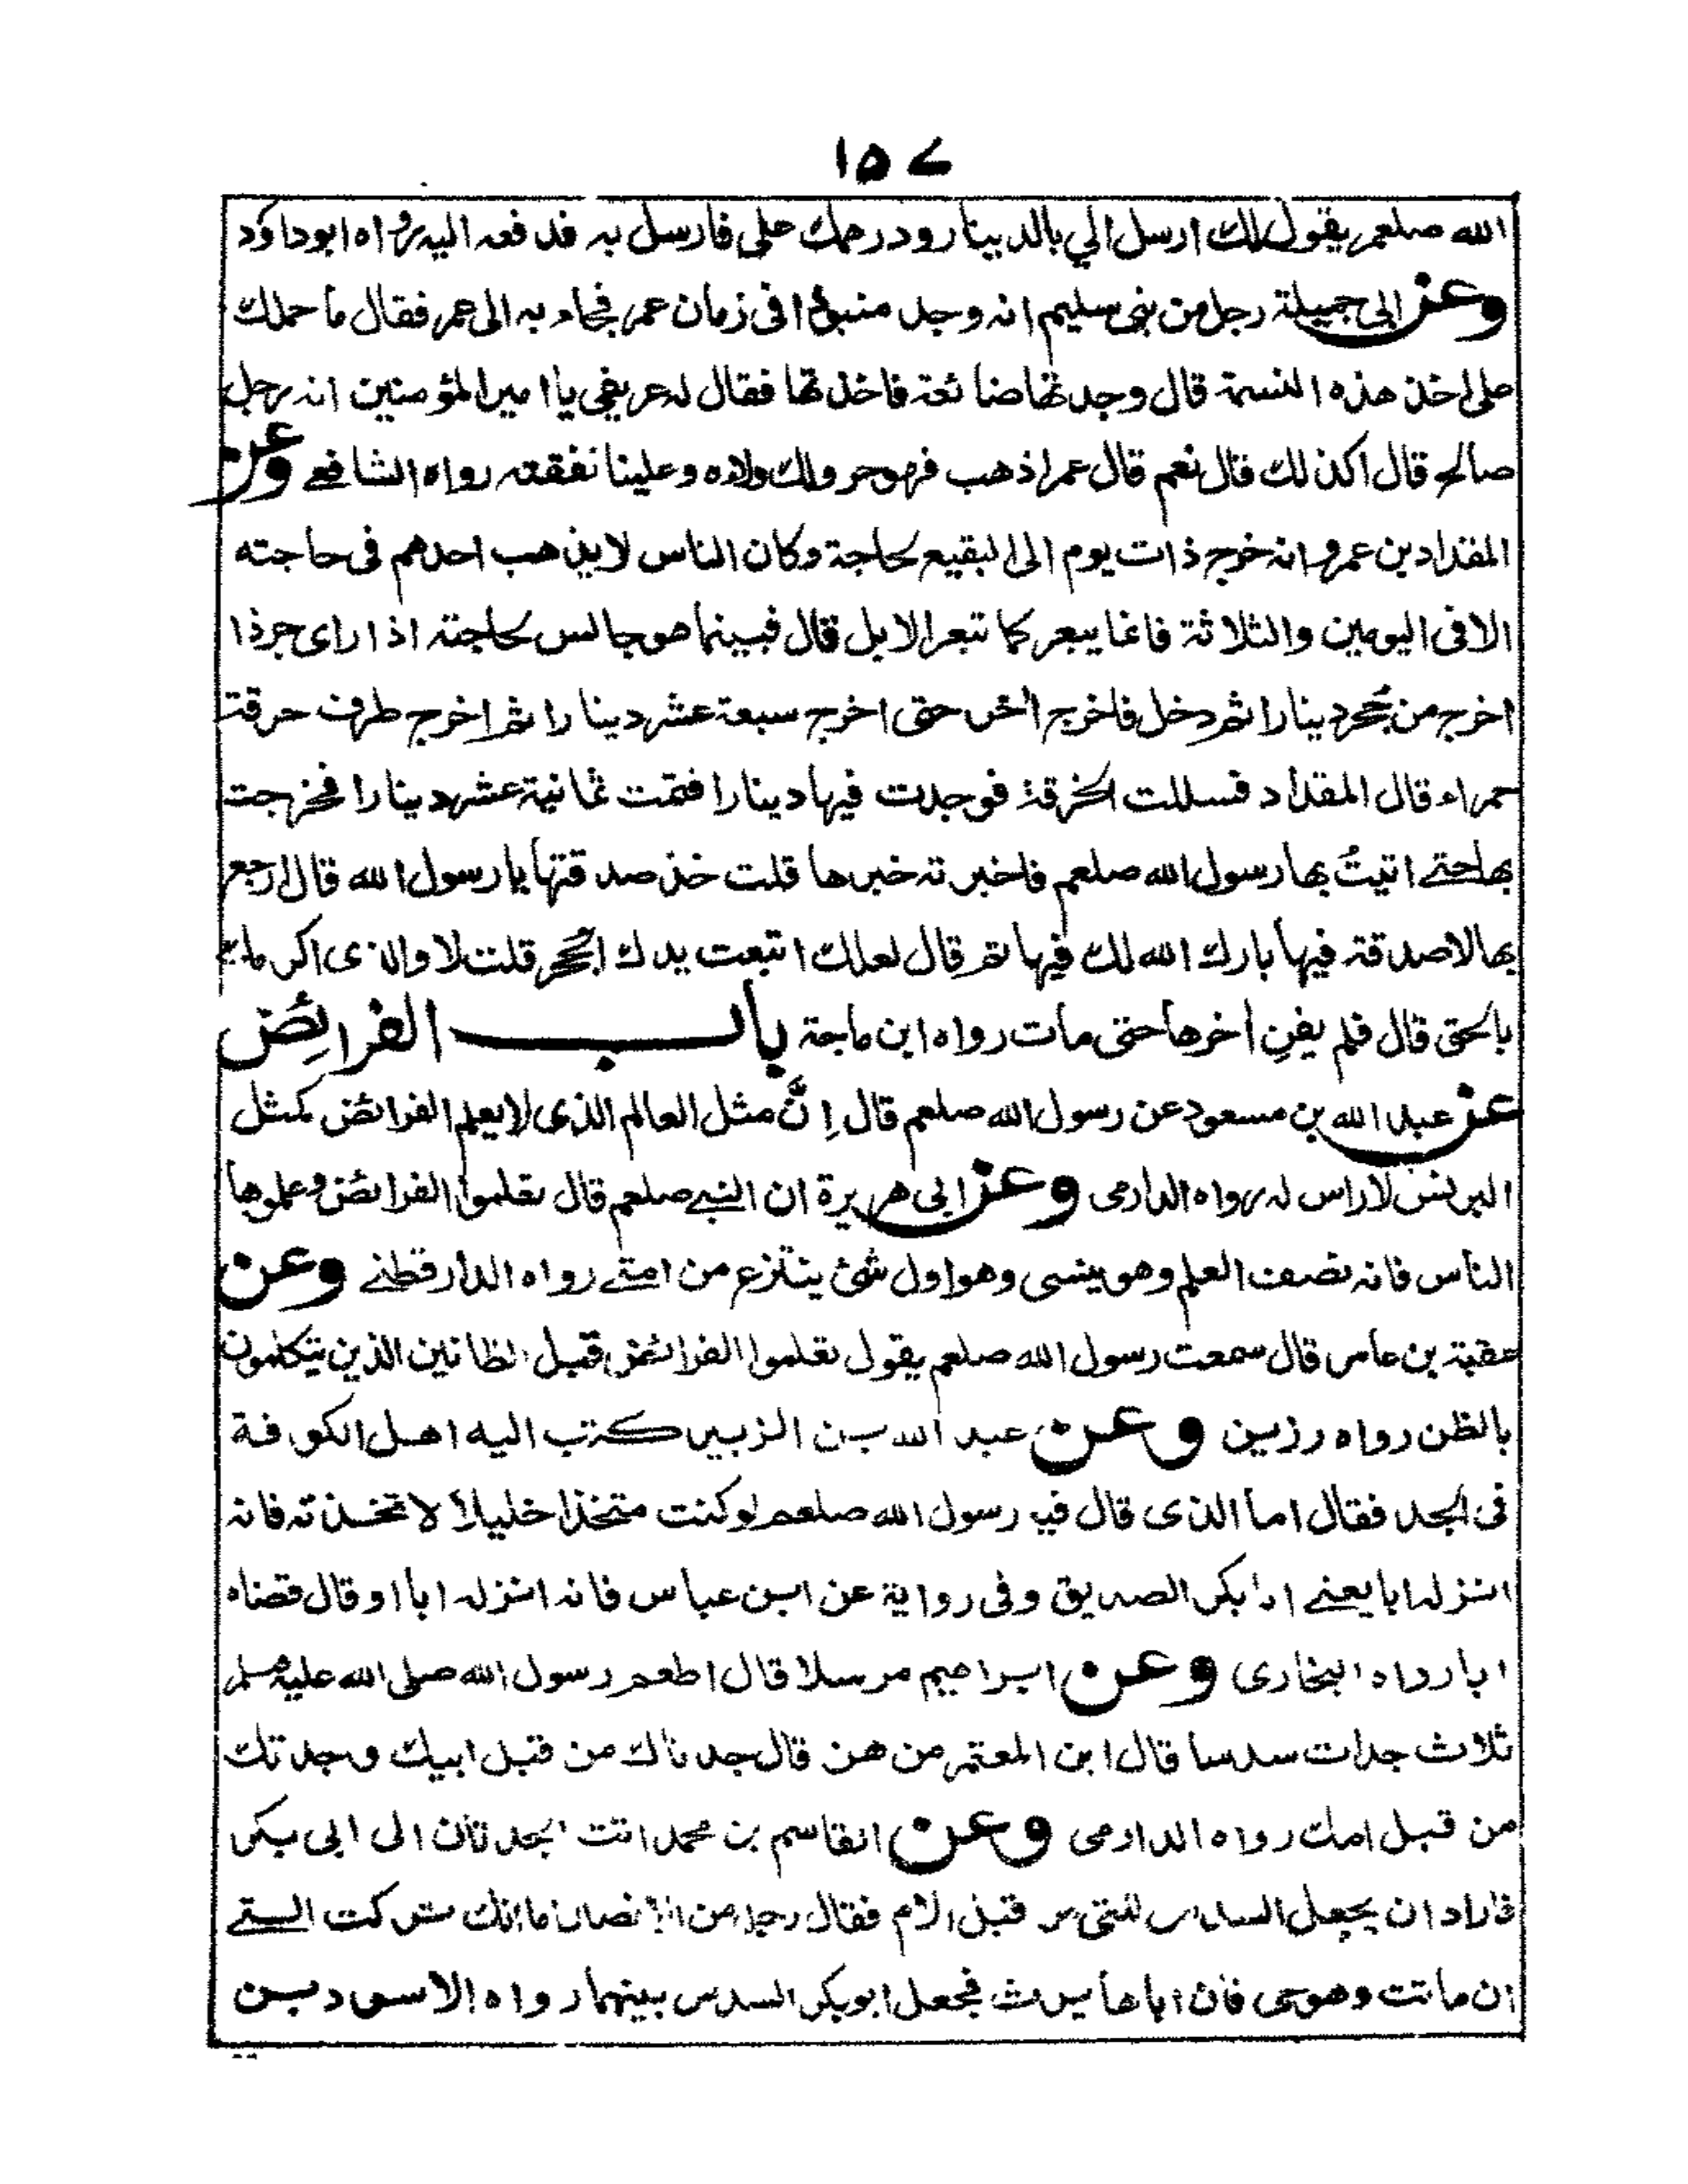 ١٥٧
الله صلعم يقول لك ارسل الي بالدينار ودرهمك على فارسل به فدفعه اليه رواه ابوداود
وعن ابى جميلة رجل من بنى سليم انه وجد منبوذا فى زمان عمر فجاء به الى عمر فقال ما حملك
على اخذ هذه النسمة قال وجدتها ضائعة فاخذتها فقال له عريفى يا امير المؤمنين انه رجل
صالح قال اكذلك قال نعم قال عمر اذهب فهو حر ولك ولاءه وعلينا نفقته رواه الشافعى وعن
المقداد بن عمرو انه خرج ذات يوم الى البقيع لحاجة وكان الناس لا يذهب احدهم فى حاجته
الا فى اليومين والثلاثة فانما يبعر كما تبعر الابل قال فبينما هو جالس لحاجته اذا راى جرذا
اخرج من جحر دينارا ثم دخل فاخرج اخر حتى اخرج سبعة عشر دينارا ثم اخرج طرف خرقة
حمراء قال المقداد فسللت الخرقة فوجدت فيها دينارا فتمت ثمانية عشر دينارا فخرجت
بها حتى اتيتُ بها رسول الله صلعم فاخبرته خبرها قلت خذ صدقتها يا رسول الله قال ارجع
بها لا صدقة فيها بارك الله لك فيها ثم قال لعلك اتبعت يدك الجحر قلت لا والذى اكرمك
بالحق قال فلم يفن اخرها حتى مات رواه ابن ماجة باب الفرائض
عن عبد الله بن مسعود عن رسول الله صلعم قال اِنَّ مثل العالم الذى لا يعلم الفرائض كمثل
البرنس لا راس له رواه الدارمى وعن ابى هريرة ان النبى صلعم قال تعلموا الفرائض وعلموها
الناس فانه نصف العلم وهو ينسى وهو اول شئ ينتزع من امتى رواه الدارقطنى وعن
عقبة بن عامر قال سمعت رسول الله صلعم يقول تعلموا الفرائض قبل الظانين الذين يتكلمون
بالظن رواه رزين وعن عبد الله بن الزبير كتب اليه اهل الكوفة
فى الجد فقال اما الذى قال فيه رسول الله صلعم لو كنت متخذا خليلا لاتخذته فانه
انزله ابا يعنى ابا بكر الصديق وفى رواية عن ابن عباس فانه انزله ابا او قال قضاه
ابا رواه البخارى وعن ابراهيم مرسلا قال اطعم رسول الله صلى الله عليه وسلم
ثلاث جدات سدسا قال ابن المعتمر من هن قال جدتاك من قبل ابيك وجدتك
من قبل امك رواه الدارمى وعن القاسم بن محمد اتت الجدتان الى ابى بكر
فاراد ان يجعل السدس للتى من قبل الام فقال رجل من الانصار اما انك تركت التى
ان ماتت وهو حى فان اباها يرث فجعل ابو بكر السدس بينهما رواه الاسود بن